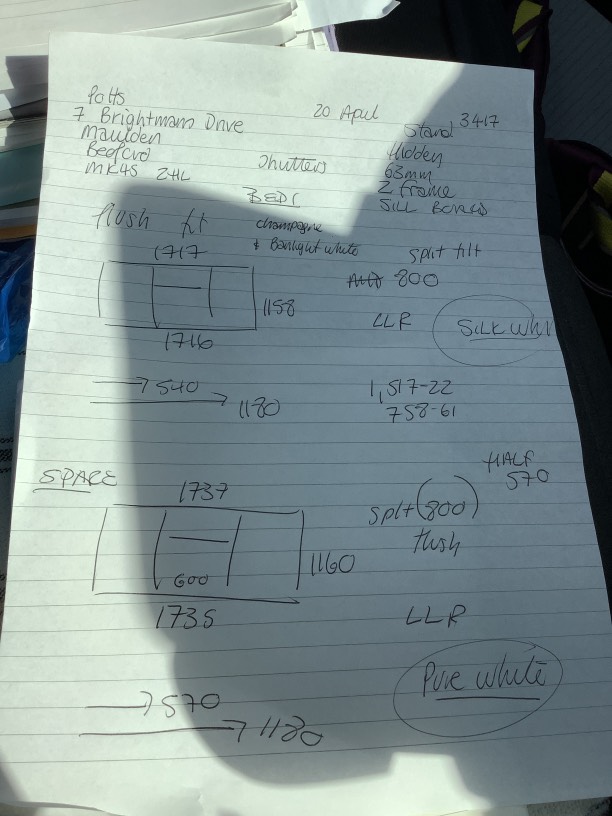 Potts
7 Brightmans Drive
Maulden
Bedford
MK45 2HL
20 April
Shutters
BED 1
Stand 3417
Hidden
63mm
Z frame
SILL BONUS
flush fit
champagne
& Bonlight white
Split tilt
800
1717
1158
1716
LLR
SILK Whi
540
1180
1,517-22
758-61
SPARE
HALF
570
1737
Split (800)
flush
1160
600
1735
LLR
Pure white
570
1180